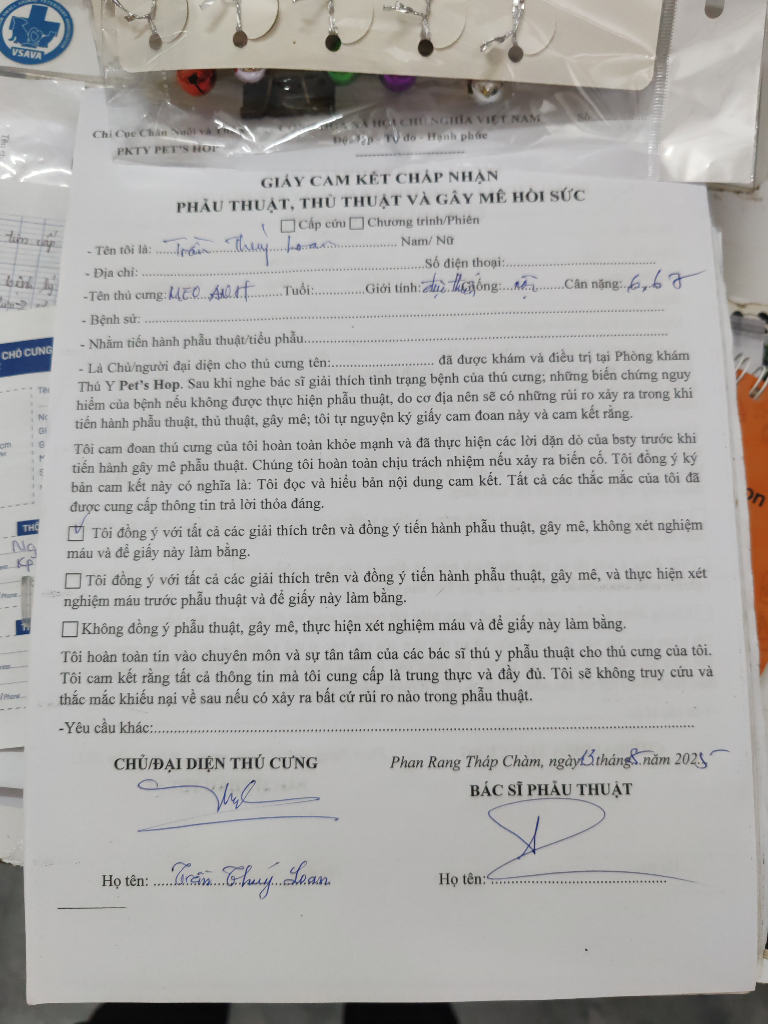 VSAVA
Chi Cục Chăn Nuôi và CỘNG HÒA XÃ HỘI CHỦ NGHĨA VIỆT NAM Số
PKTY PET'S HOP Độc lập - Tự do - Hạnh phúc
GIẤY CAM KẾT CHẤP NHẬN
PHẪU THUẬT, THỦ THUẬT VÀ GÂY MÊ HỒI SỨC
Cấp cứu Chương trình/Phiên
- Tên tôi là: Trần Thuý Loan Nam/ Nữ
- Địa chỉ: Số điện thoại:
-Tên thú cưng: MEO Tuổi: Giới tính: Giống: Cân nặng: 6,6
- Bệnh sử:
- Nhằm tiến hành phẫu thuật/tiểu phẫu
- Là Chủ/người đại diện cho thú cưng tên: đã được khám và điều trị tại Phòng khám
Thú Y Pet's Hop. Sau khi nghe bác sĩ giải thích tình trạng bệnh của thú cưng; những biến chứng nguy
hiểm của bệnh nếu không được thực hiện phẫu thuật, do cơ địa nên sẽ có những rủi ro xảy ra trong khi
tiến hành phẫu thuật, thủ thuật, gây mê; tôi tự nguyện ký giấy cam đoan này và cam kết rằng.
Tôi cam đoan thú cưng của tôi hoàn toàn khỏe mạnh và đã thực hiện các lời dặn dò của bsty trước khi
tiến hành gây mê phẫu thuật. Chúng tôi hoàn toàn chịu trách nhiệm nếu xảy ra biến cố. Tôi đồng ý ký
bản cam kết này có nghĩa là: Tôi đọc và hiểu bản nội dung cam kết. Tất cả các thắc mắc của tôi đã
được cung cấp thông tin trả lời thỏa đáng.
Tôi đồng ý với tất cả các giải thích trên và đồng ý tiến hành phẫu thuật, gây mê, không xét nghiệm
máu và để giấy này làm bằng.
Tôi đồng ý với tất cả các giải thích trên và đồng ý tiến hành phẫu thuật, gây mê, và thực hiện xét
nghiệm máu trước phẫu thuật và để giấy này làm bằng.
Không đồng ý phẫu thuật, gây mê, thực hiện xét nghiệm máu và để giấy này làm bằng.
Tôi hoàn toàn tin vào chuyên môn và sự tân tâm của các bác sĩ thú y phẫu thuật cho thú cưng của tôi.
Tôi cam kết rằng tất cả thông tin mà tôi cung cấp là trung thực và đầy đủ. Tôi sẽ không truy cứu và
thắc mắc khiếu nại về sau nếu có xảy ra bất cứ rủi ro nào trong phẫu thuật.
-Yêu cầu khác:
CHỦ/ĐẠI DIỆN THÚ CƯNG Phan Rang Tháp Chàm, ngày 13 tháng 8 năm 2025
BÁC SĨ PHẪU THUẬT
Họ tên: Trần Thuý Loan Họ tên: